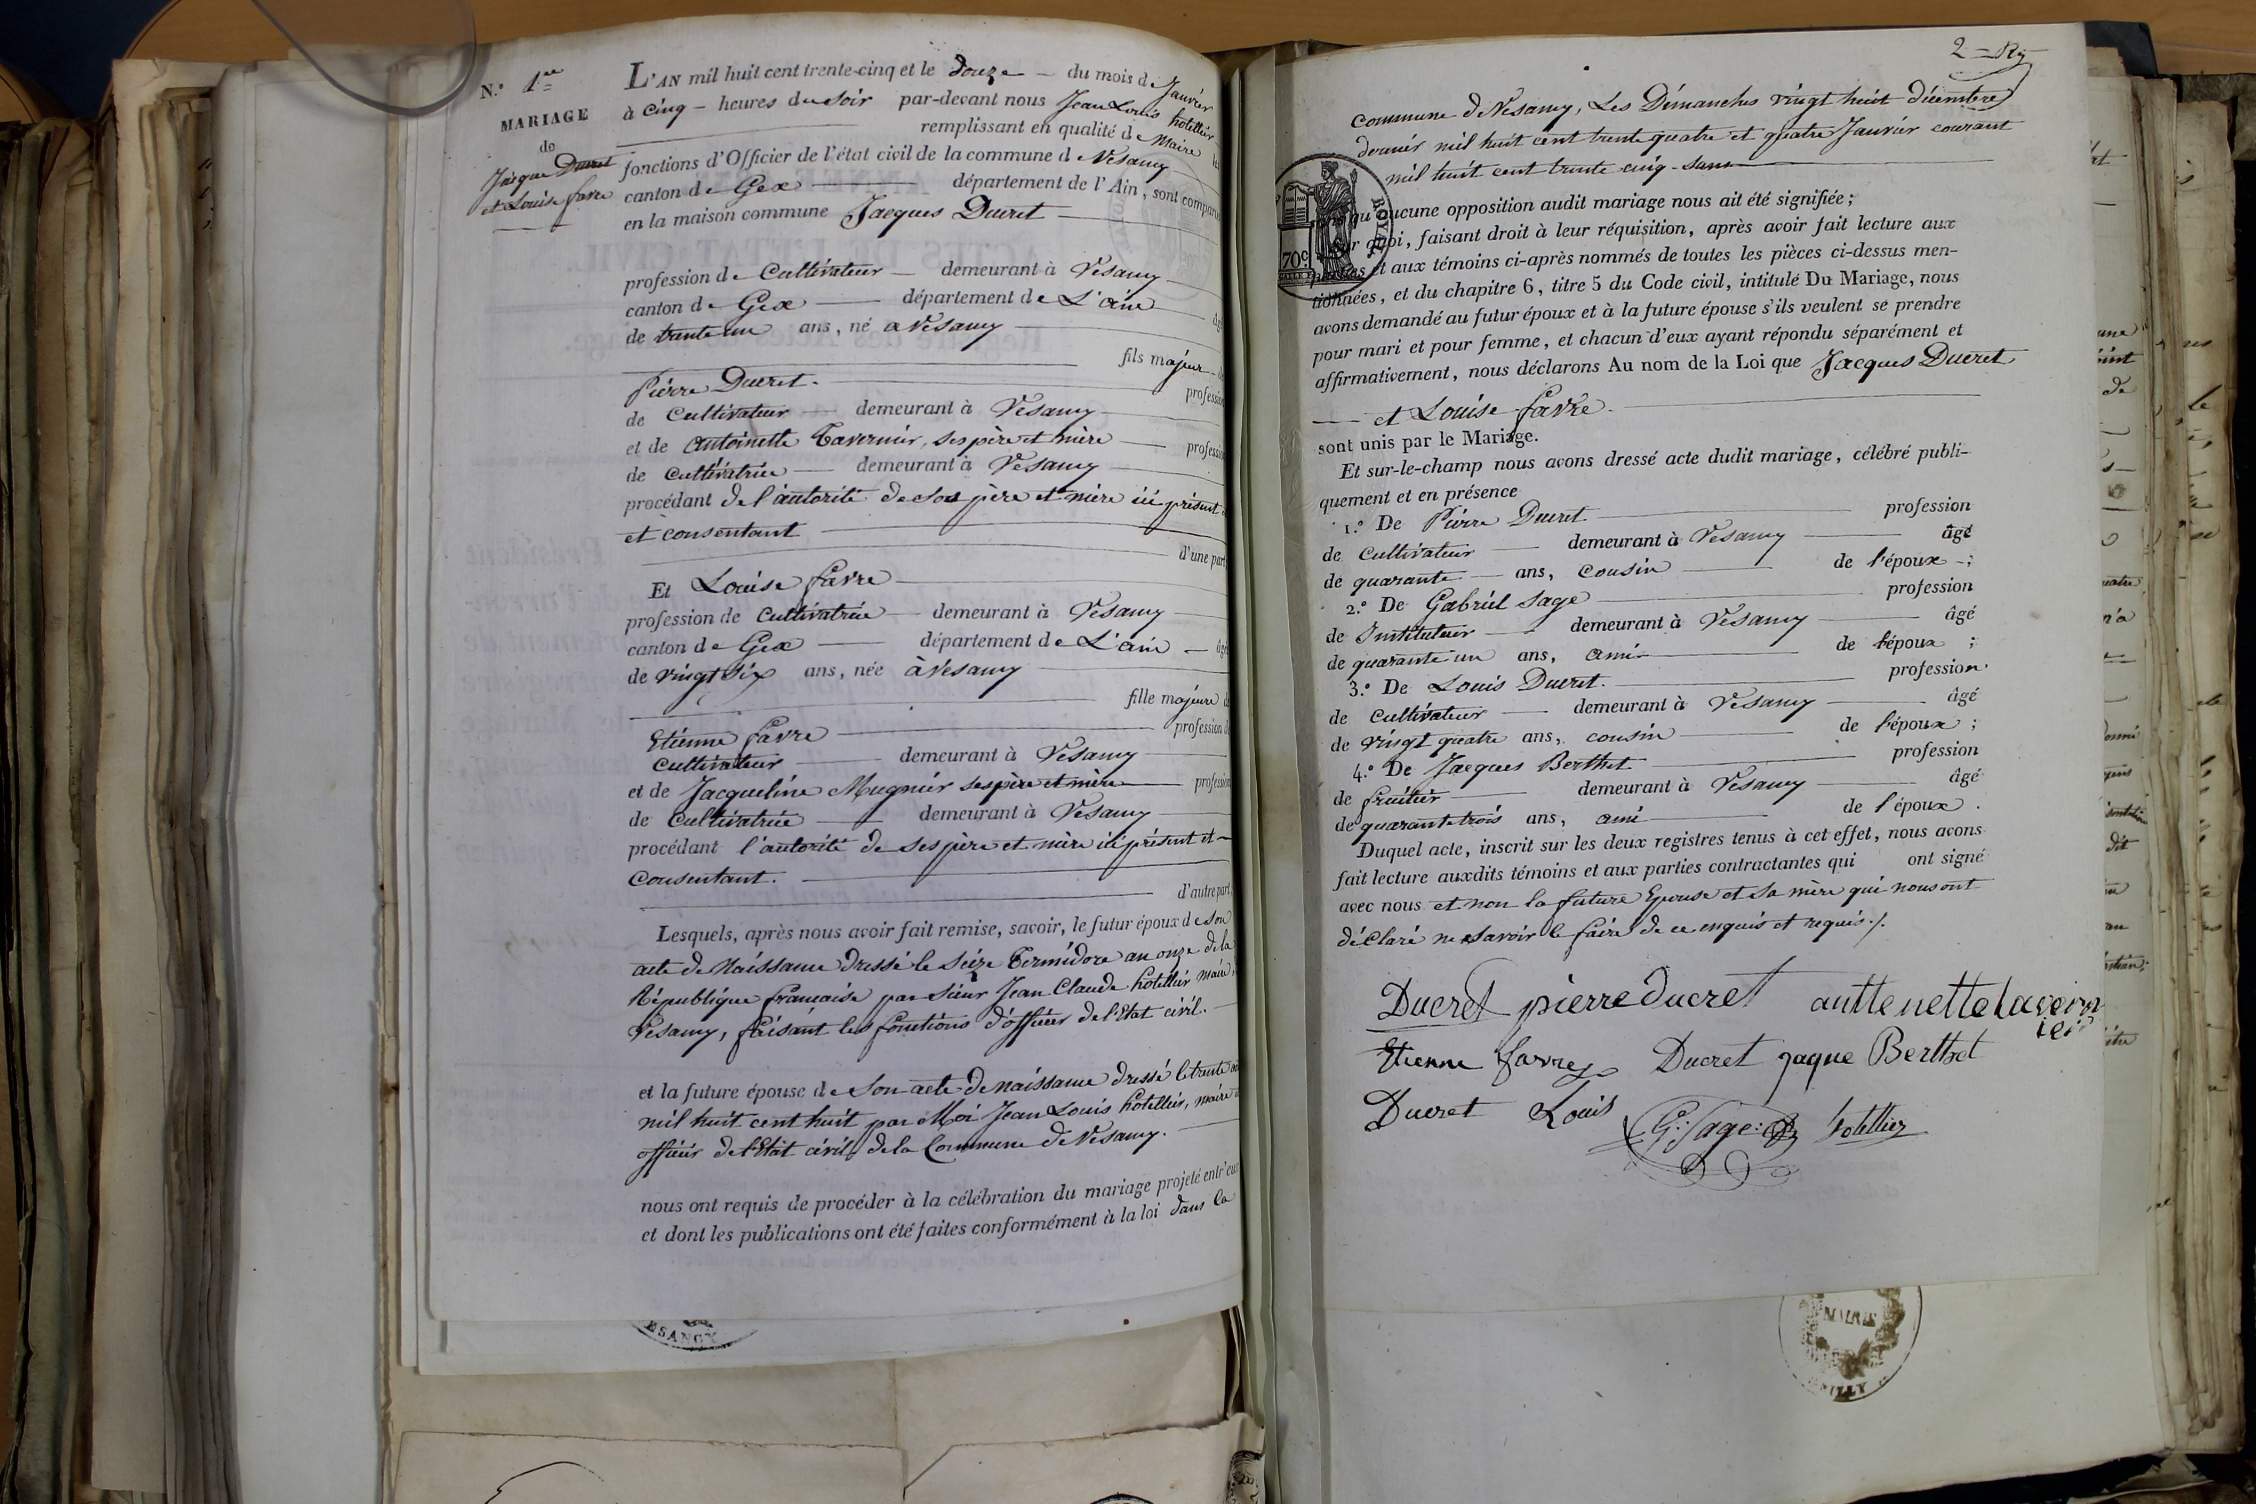 N.º 1er
MARIAGE
de
Jacque Ducret
et Louise favre
L'AN mil huit cent trente-cinq et le douze du mois de Janvier
à cinq heures du soir par-devant nous Jean Louis hotellier
remplissant en qualité de Maire les
fonctions d'Officier de l'état civil de la commune de Vesancy
canton de Gex département de l'Ain, sont comparus
en la maison commune Jacques Ducret
profession de Cultivateur demeurant à Vesancy
canton de Gex département de L'ain âgé
de trente un ans, né a Vesancy
fils majeur de
Pierre Ducret. profession
de Cultivateur demeurant à Vesancy
et de Antoinette Tavernier, ses père et mère profession
de Cultivatrice demeurant à Vesancy
procédant de l'autorité de ses père et mère ici présent
et consentant
d'une part,
Et Louise favre
profession de Cultivatrice demeurant à Vesancy
canton de Gex département de L'ain âgée
de vingt six ans, née à Vesancy
fille majeure de
Etienne favre profession de
Cultivateur demeurant à Vesancy
et de Jacqueline Mugnier ses père et mère profession
de Cultivatrice demeurant à Vesancy
procédant l'autorité de ses père et mère ici présent et
Consentant.
d'autre part.
Lesquels, après nous avoir fait remise, savoir, le futur époux de son
acte de Naissance dressé le Seize Termidore an onze de la
République francaise par Sieur Jean Claude hotellier maire
Vesancy, faisant les fonctions d'officier de l'Etat civil.
et la future épouse de son acte de naissance dressé le trente
mil huit cent huit par Moi Jean Louis hotellier, maire
officier de l'Etat civil de la Commune de Vesancy.
nous ont requis de procéder à la célébration du mariage projeté entr'eux
et dont les publications ont été faites conformément à la loi dans la
ESANCY
2
commune de Vesancy, Les Dimanches vingt huit décembre
dernier mil huit cent trente quatre et quatre Janvier courant
mil huit cent trente cinq sans
qu'aucune opposition audit mariage nous ait été signifiée;
Sur quoi, faisant droit à leur réquisition, après avoir fait lecture aux
parties et aux témoins ci-après nommés de toutes les pièces ci-dessus men-
tionnées, et du chapitre 6, titre 5 du Code civil, intitulé Du Mariage, nous
avons demandé au futur époux et à la future épouse s'ils veulent se prendre
pour mari et pour femme, et chacun d'eux ayant répondu séparément et
affirmativement, nous déclarons Au nom de la Loi que Jacques Ducret
et Louise favre.
sont unis par le Mariage.
Et sur-le-champ nous avons dressé acte dudit mariage, célébré publi-
quement et en présence
1.º De Pierre Ducret profession
de Cultivateur demeurant à Vesancy âgé
de quarante ans, cousin de l'époux ;
2.º De Gabriel Sage profession
de Instituteur demeurant à Vesancy âgé
de quarante un ans, ami de l'époux ;
3.º De Louis Ducret. profession
de Cultivateur demeurant à Vesancy âgé
de vingt quatre ans, cousin de l'époux ;
4.º De Jacques Berthet profession
de fruitier demeurant à Vesancy âgé
de quarante trois ans, ami de l'époux .
Duquel acte, inscrit sur les deux registres tenus à cet effet, nous avons
fait lecture auxdits témoins et aux parties contractantes qui ont signé
avec nous et non la future Epouse et sa mère qui nous ont
déclaré ne savoir le faire de ce enquis et requis ./.
Ducret pierre ducret anttenette tavern
ier
Etienne favre Ducret jaque Berthet
Ducret Louis G: Sage: hotellier
ROYAL
70c
MAIRIE